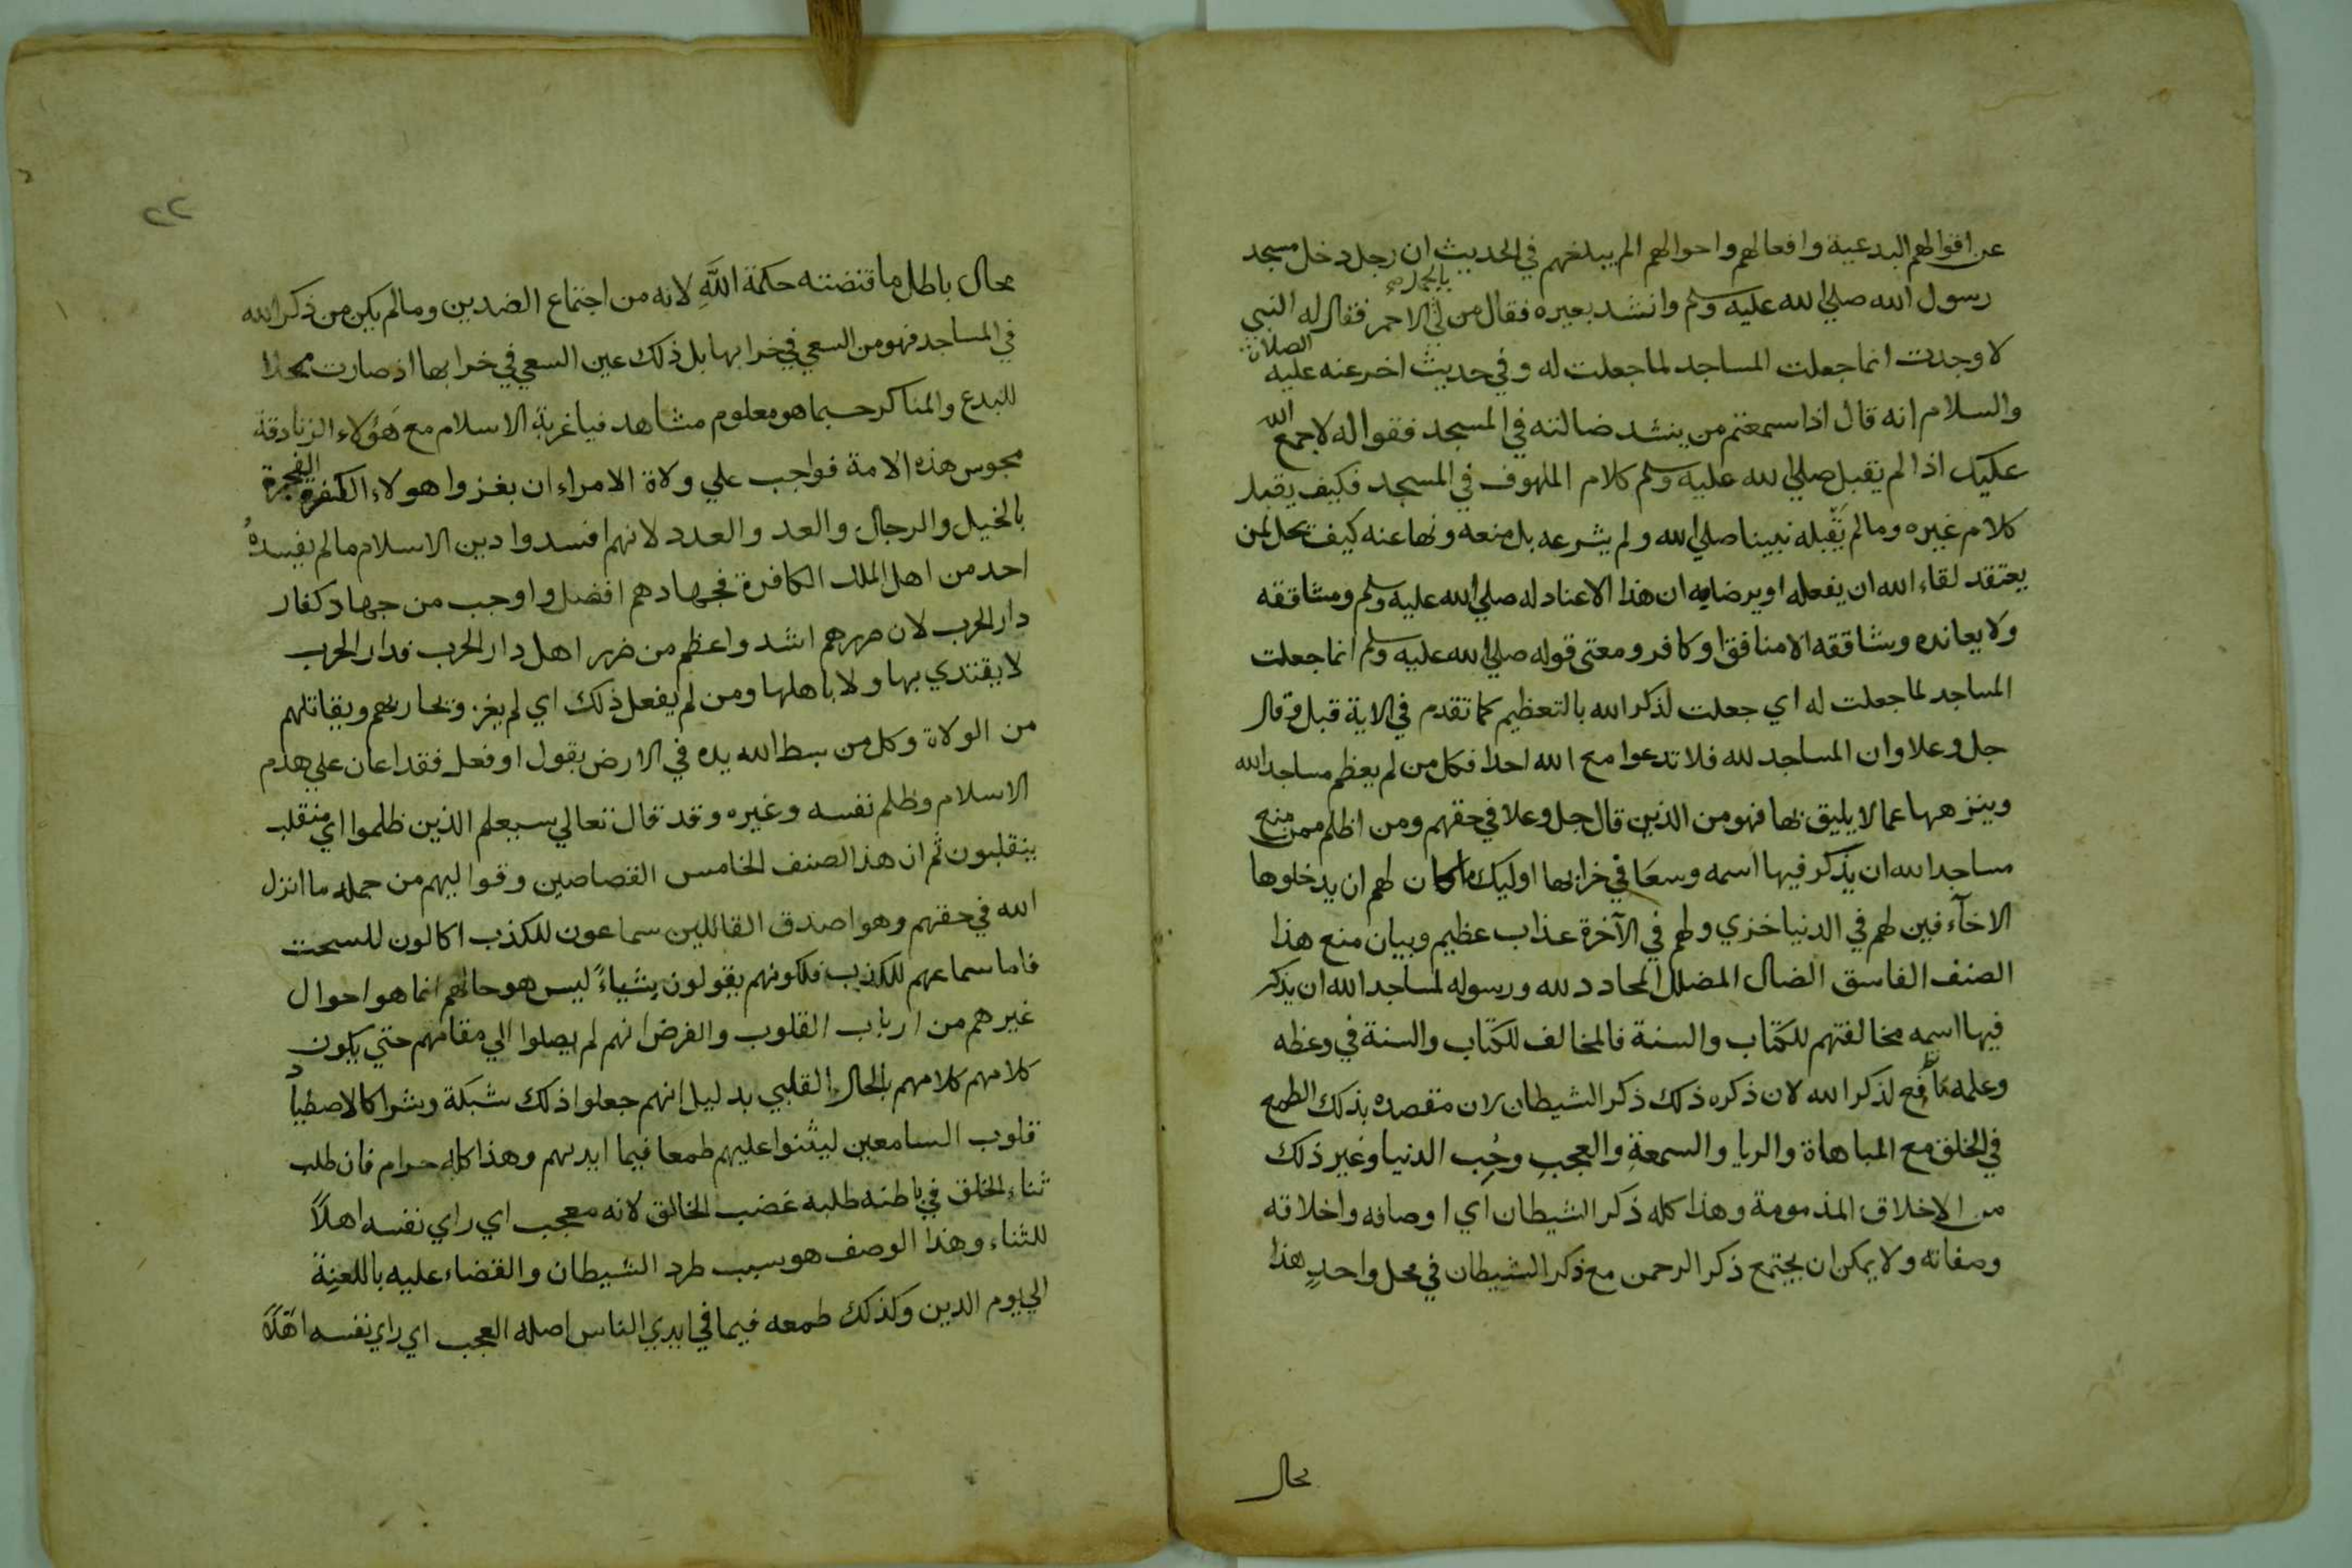 عن اقوالهم البدعية وافعالهم واحوالهم الم يبلغهم في الحديث ان رجل دخل مسجد
رسول الله صلي الله عليه وسلم وانشد بعيره فقال من لي الاحمر فقال له النبي
لا وجدت انما جعلت المساجد لما جعلت له وفي حديث اخر عنه عليه الصلاة
والسلام انه قال اذا سمعتم من ينشد ضالته في المسجد فقوا له لا جمع الله
عليك اذا لم يقبل صلي الله عليه وسلم كلام الملهوف في المسجد فكيف يقبل
كلام غيره وما لم يقبله نبينا صلي الله ولم يشرعه بل منعه ونها عنه كيف يحل لمن
يعتقد لقاء الله ان يفعله او يرضا به ان هذا الا عناد له صلي الله عليه وسلم ومشاققه
ولا يعانده ويشاققه الا منافق او كافر ومعني قوله صلي الله عليه وسلم انما جعلت
المساجد لما جعلت له اي جعلت لذكر الله بالتعظيم كما تقدم في الاية قبل وقال
جل وعلا وان المساجد لله فلا تدعوا مع الله احدا فكل من لم يعظم مساجد الله
وينزهها عما لا يليق بها فهو من الذين قال جل وعلا في حقهم ومن اظلم ممن منع
مساجد الله ان يذكر فيها اسمه وسعا في خرابها اوليك ما كان لهم ان يدخلوها
الا خآئفين لهم في الدنيا خزي ولهم في الآخرة عذاب عظيم وبيان منع هذا
الصنف الفاسق الضال المضلل المحادد لله ورسوله لمساجد الله ان يذكر
فيها اسمه مخالفتهم للكتاب والسنة فالمخالف للكتاب والسنة في وعظه
وعلمه لذكر الله لان ذكره ذلك ذكر الشيطان لان مقصده بذلك الطمع
في الخلق مع المباهاة والريا والسمعة والعجب وحب الدنيا وغير ذلك
من الاخلاق المذمومة وهذا كله ذكر الشيطان اي اوصافه واخلاقه
وصفاته ولا يمكن ان يجتمع ذكر الرحمن مع ذكر الشيطان في محل واحد هذا
محال
٢٢
محال باطل ما قتضته حكمة الله لانه من اجتماع الضدين وما لم يكن من ذكر الله
في المساجد فهو من السعي في خرابها بل ذلك عين السعي في خرابها اذ صارت محلا
للبدع والمناكر حسبما هو معلوم مشاهد فيا غربة الاسلام مع هؤلاء الزنادقة
مجوس هذه الامة فواجب علي ولاة الامراء ان يغزوا هولاء الكفرة الفجرة
بالخيل والرجال والعد والعدد لانهم افسدوا دين الاسلام ما لم يفسده
احد من اهل الملل الكافرة فجهادهم افضل واوجب من جهاد كفار
دار الحرب لان ضررهم اشد واعظم من ضرر اهل دار الحرب فدار الحرب
لا يقتدي بها ولا باهلها ومن لم يفعل ذلك اي لم يغز ويحاربهم ويقاتلهم
من الولاة وكل من بسط الله يده في الارض بقول او فعل فقد اعان علي هدم
الاسلام وظلم نفسه وغيره وقد قال تعالي سيعلم الذين ظلموا اي منقلب
ينقلبون ثم ان هذا الصنف الخامس القصاصين وقواليهم من جملة ما انزل
الله في حقهم وهو اصدق القائلين سماعون للكذب اكالون للسحت
فاما سماعهم للكذب فلكونهم يقولون بشياء ليس هو حالهم انما هو احوال
غيرهم من ارباب القلوب والفرض انهم لم يصلوا الي مقامهم حتي يكون
كلامهم كلامهم بالحال القلبي بدليل انهم جعلوا ذلك شبكة وشراكا لاصطياد
قلوب السامعين ليثنوا عليهم طمعا فيما ايديهم وهذا كله حرام فان طلب
ثناء الخلق في باطنه طلبه غضب الخالق لانه معجب اي راي نفسه اهلاً
للثناء وهذا الوصف هو سبب طرد الشيطان والقضاء عليه باللعنة
الي يوم الدين وكذلك طمعه فيما في ايدي الناس اصله العجب اي راي نفسه اهلاً